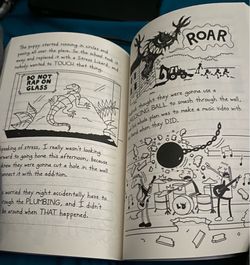 The puppy started running in circles and
peeing all over the place. So the school took it
away and replaced it with a Stress Lizard,
nobody wanted to TOUCH that thing.
DO NOT
RAP ON
GLASS
speaking of stress, I really wasn't looking
forward to going home this afternoon, because
knew they were gonna cut a hole in the wall
connect it with the addition.
worried they might accidentally have to
through the PLUMBING, and I didn't
be around when THAT happened.
ROAR
thought they were gonna use a
BALL to smash through the wall,
whole plan was to make a music video with
when they DID.